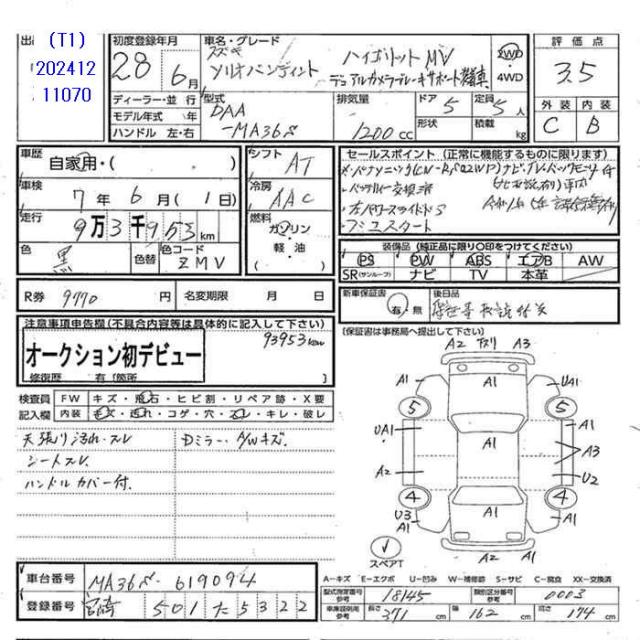 出品
(T1)
202412
11070
初度登録年月
28 6月
車名・グレード
スズキ
ソリオバンディット ハイブリットMV
デュアルカメラブレーキサポート装着車
2WD・4WD
評価点
3.5
外装 内装
C B
ディーラー・並行
モデル年式 年
ハンドル 左・右
型式
DAA
-MA36S
排気量
1200cc
ドア 5
形状
定員 5人
積載 kg
車歴
自家用・( )
シフト
AT
車検
7年 6月 ( 1日)
冷房
AAC
走行
9万3千953km
燃料
ガソリン
軽・油
( )
色
黒
色替
色コード
ZMV
セールスポイント (正常に機能するものに限ります)
・バッテリー交換済
・左パワースライドドS
・プシュスタート
装備品 (純正品に限り〇印をつけてください)
PS PW ABS エアB AW
SR(サンルーフ) ナビ TV 本革
R券 9770 円 名変期限 月 日
新車保証書
有・無
後日品
(保証書は事務局へ提出して下さい)
注意事項申告欄(不具合内容等は具体的に記入して下さい)
93953km
オークション初デビュー
修復歴 有(箇所
検査員 FW キズ・飛石・ヒビ割・リペア跡・X要
記入欄 内装 キズ・汚れ・コゲ・穴・スレ・キレ・破レ
天張り汚れ・スレ Dミラー・A/Wキズ.
シートスレ.
ハンドルカバー付.
A2 A3
A1 A1 UA1
5 5
UA1 A1 A1
A3
A2 U2
4 4
U3 A1
A1 A1
スペアT
車台番号 MA36S-619094
登録番号 宮崎 501 た 5322
A-キズ E-エクボ U-凹み W-補修跡 S-サビ C-腐食 XX-交換済
型式指定番号 参考 18145 類別区分番号 参考 0003
車検証明用 参考 長さ 371cm 幅 162cm 高さ 174cm